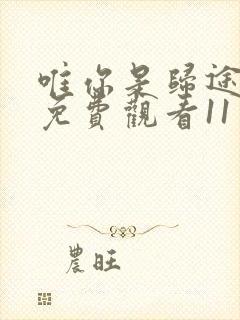 唯你是歸途
免費觀看11
農旺